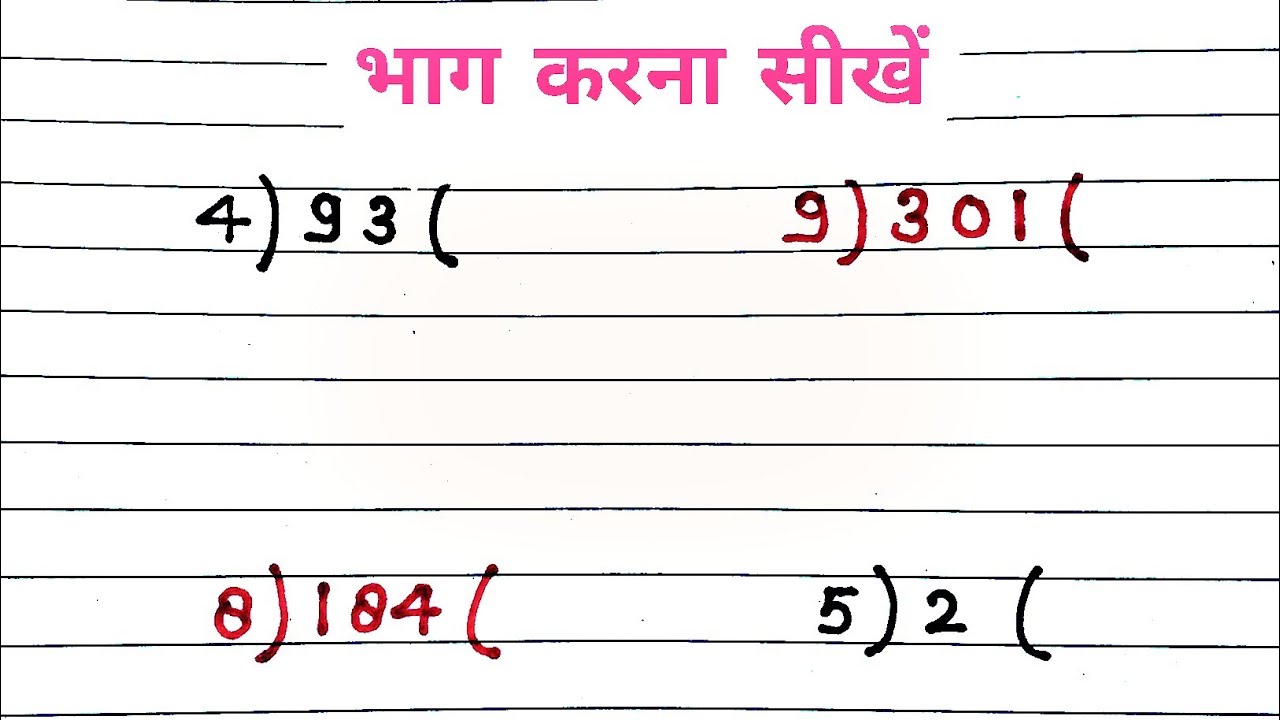 भाग करना सीखें
4)93(
9)301(
8)184(
5)2 (